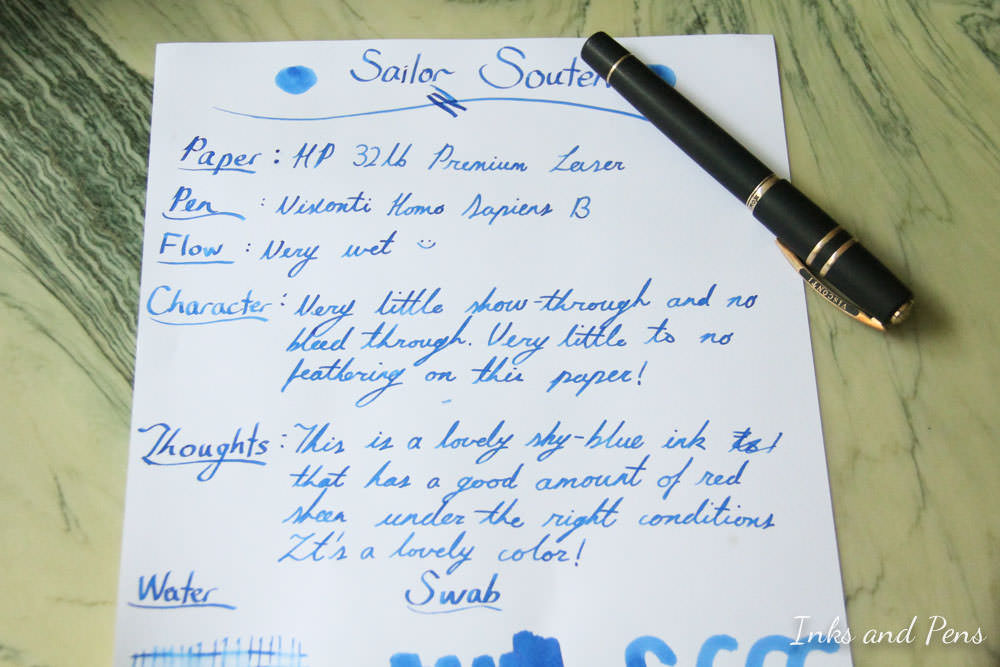 Sailor Souten
Paper: HP 32lb Premium Laser
Pen : Visconti Homo Sapiens B
Flow : Very wet
Character: Very little show-through and no
bleed through. Very little to no
feathering on this paper!
Thoughts: This is a lovely sky-blue ink
that has a good amount of red
sheen under the right conditions
It's a lovely color!
Water Swab
VISCONTI
Inks and Pens